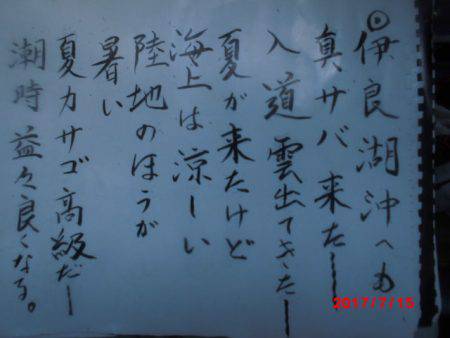 ◎伊良湖沖へも
真サバ来たー
入道雲出てきたー
夏が来たけど
海上は涼しい
陸地のほうが
暑い
夏カサゴ高級だー
潮時益々良くなる。
2017/7/15